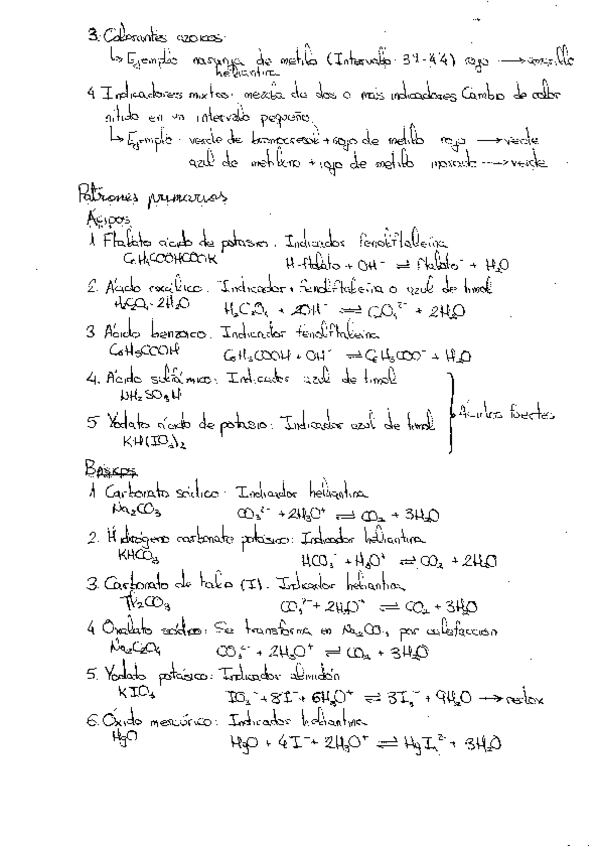 3. Colorantes azoicos.
↳ Ejemplo naranja de metilo (Intervalo 3'1-4'4) rojo → amarillo
heliantina
4 Indicadores mixtos: mezcla de dos o más indicadores Cambio de color
nítido en un intervalo pequeño.
↳ Ejemplo: verde de bromocresol + rojo de metilo rojo → verde
azul de metileno + rojo de metilo morado → verde
Patrones primarios
Ácidos
1 Ftalato ácido de potasio. Indicador fenolftaleína
C₆H₄COOHCOOK H-ftalato + OH⁻ ⇌ ftalato⁻ + H₂O
2. Ácido oxálico. Indicador: fenolftaleína o azul de timol
H₂C₂O₄·2H₂O H₂C₂O₄ + 2OH⁻ ⇌ C₂O₄²⁻ + 2H₂O
3 Ácido benzoico. Indicador fenolftaleína
C₆H₅COOH C₆H₅COOH + OH⁻ ⇌ C₆H₅COO⁻ + H₂O
4. Ácido sulfámico: Indicador azul de timol
NH₂SO₃H
Ácidos fuertes
5 Yodato ácido de potasio: Indicador azul de timol
KH(IO₃)₂
Bases
1 Carbonato sódico. Indicador heliantina
Na₂CO₃ CO₃²⁻ + 2H₃O⁺ ⇌ CO₂ + 3H₂O
2. Hidrógeno carbonato potásico: Indicador heliantina
KHCO₃ HCO₃⁻ + H₃O⁺ ⇌ CO₂ + 2H₂O
3. Carbonato de talio (I). Indicador heliantina
Tl₂CO₃ CO₃²⁻ + 2H₃O⁺ ⇌ CO₂ + 3H₂O
4 Oxalato sódico: Se transforma en Na₂CO₃ por calefacción
Na₂C₂O₄ CO₃²⁻ + 2H₃O⁺ ⇌ CO₂ + 3H₂O
5. Yodato potásico: Indicador almidón
KIO₃ IO₃⁻ + 8I⁻ + 6H₃O⁺ ⇌ 3I₃⁻ + 9H₂O → redox
6. Óxido mercúrico: Indicador heliantina
HgO HgO + 4I⁻ + 2H₃O⁺ ⇌ HgI₄²⁻ + 3H₂O